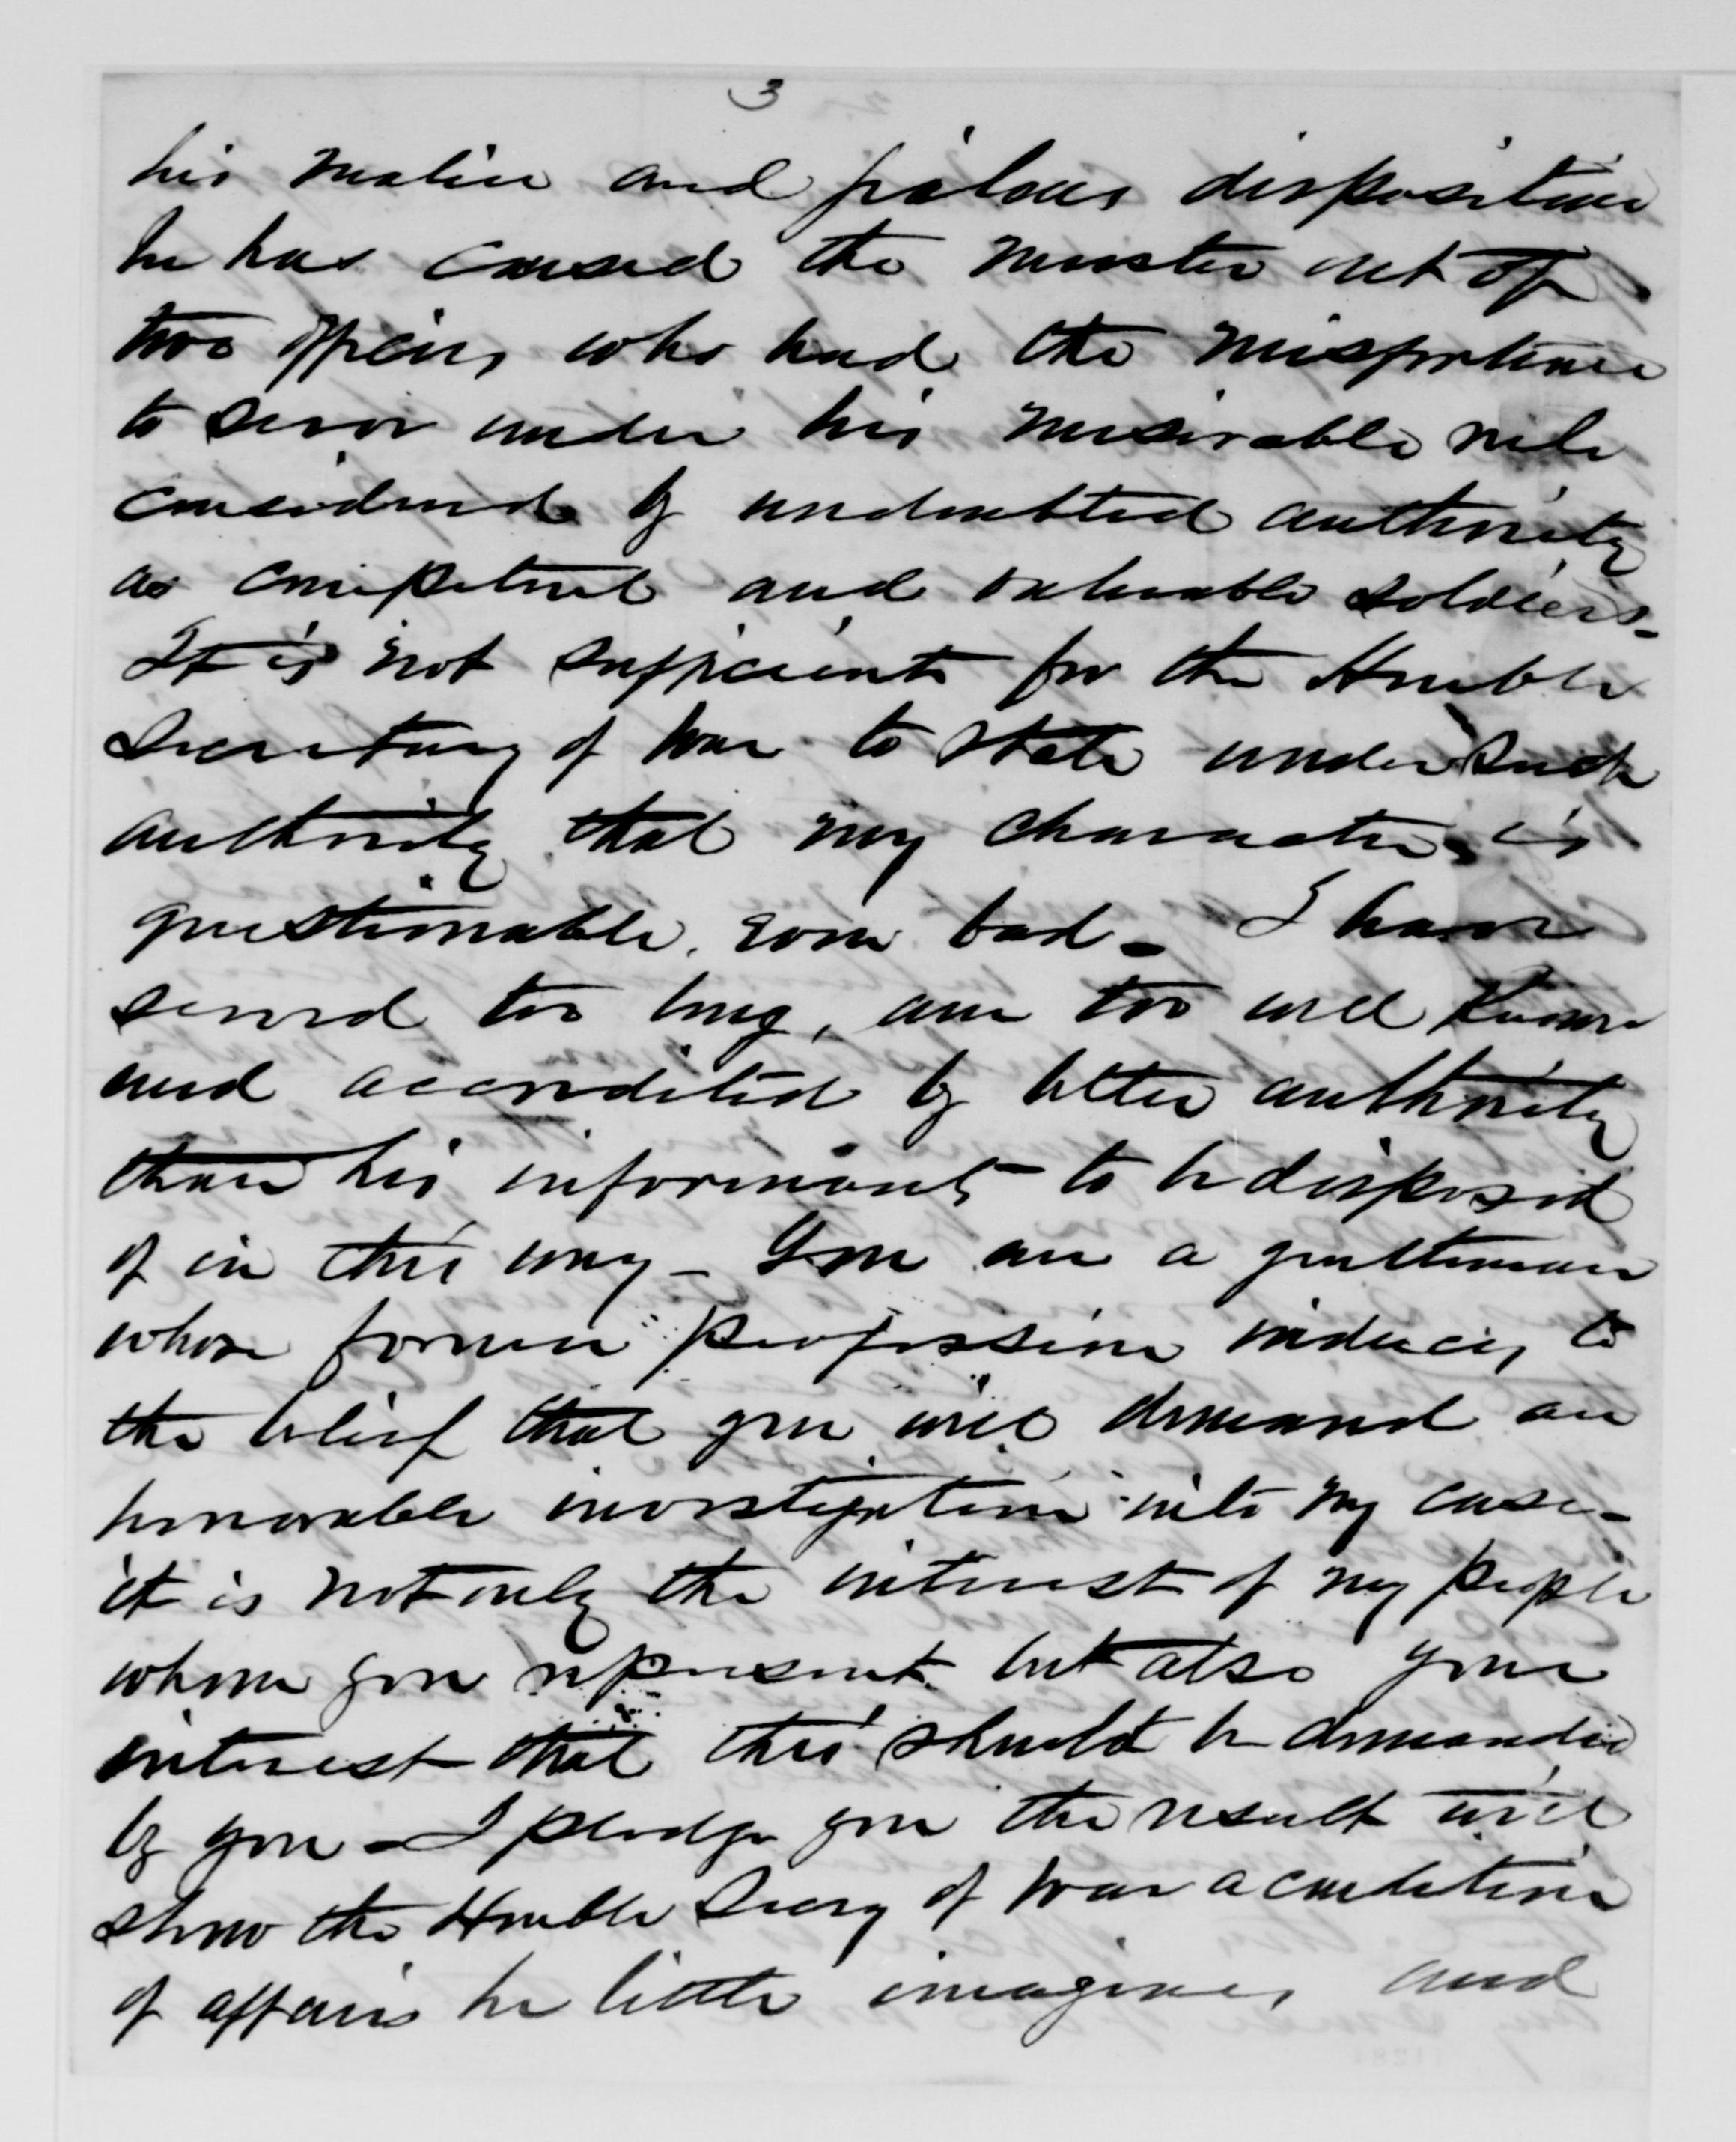 3
his malice and jealous disposition
he has caused the muster out of
two officers, who had the misfortune
to serve under his miserable rule
considered by undoubted authority
as competent and valuable soldiers -
It is not sufficient for the Honble
Secretary of War to state under such
authority that my character is
questionable, even bad - I have
served too long, am too well known
and accredited by better authority
than his informants to be disposed
of in this way - You are a gentleman
whose former profession induces to
the belief that you will demand an
honorable investigation into my case -
it is not only the interest of my people
whom you represent but also your
interest that this should be demanded
by you - I pledge you the result will
show the Honble Secry of War a condition
of affairs he little imagines, and